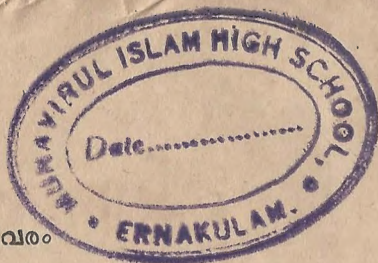 MUNAVIRUL ISLAM HIGH SCHOOL,
Date....................
ERNAKULAM.
വരം